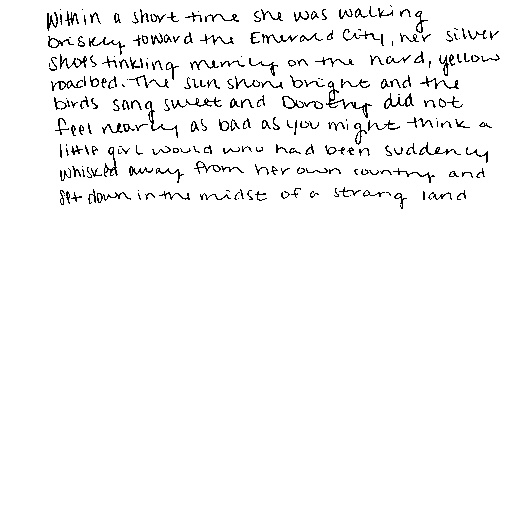 Within a short time she was walking
briskly toward the Emerald City, her silver
shoes tinkling merrily on the hard, yellow
roadbed. The sun shone bright and the
birds sang sweet and Dorothy did not
feel nearly as bad as you might think a
little girl would who had been suddenly
whisked away from her own country and
set down in the midst of a strang land